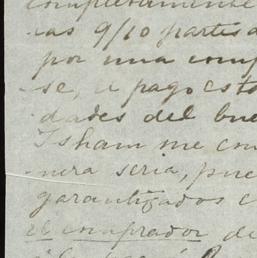 completamente
las 9/10 partes d
por una comp
se, el pago esta
dades del bue
Isham me con
nera seria, pue
garantizados c
el comprador de